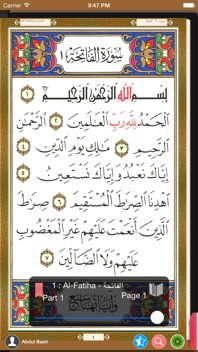 Carrier
9:47 PM
سُورَةُ الفَاتِحَةِ ١
بِسْمِ اللَّهِ الرَّحْمَٰنِ الرَّحِيمِ ١
الْحَمْدُ لِلَّهِ رَبِّ الْعَالَمِينَ ٢ الرَّحْمَٰنِ
الرَّحِيمِ ٣ مَالِكِ يَوْمِ الدِّينِ ٤
إِيَّاكَ نَعْبُدُ وَإِيَّاكَ نَسْتَعِينُ ٥
اهْدِنَا الصِّرَاطَ الْمُسْتَقِيمَ ٦ صِرَاطَ
الَّذِينَ أَنْعَمْتَ عَلَيْهِمْ غَيْرِ الْمَغْضُوبِ
عَلَيْهِمْ وَلَا الضَّالِّينَ ٧
1 : Al-Fatiha - الفاتحة
Part 1
Page 1
وآياتها سبع
1
Abdul Basit